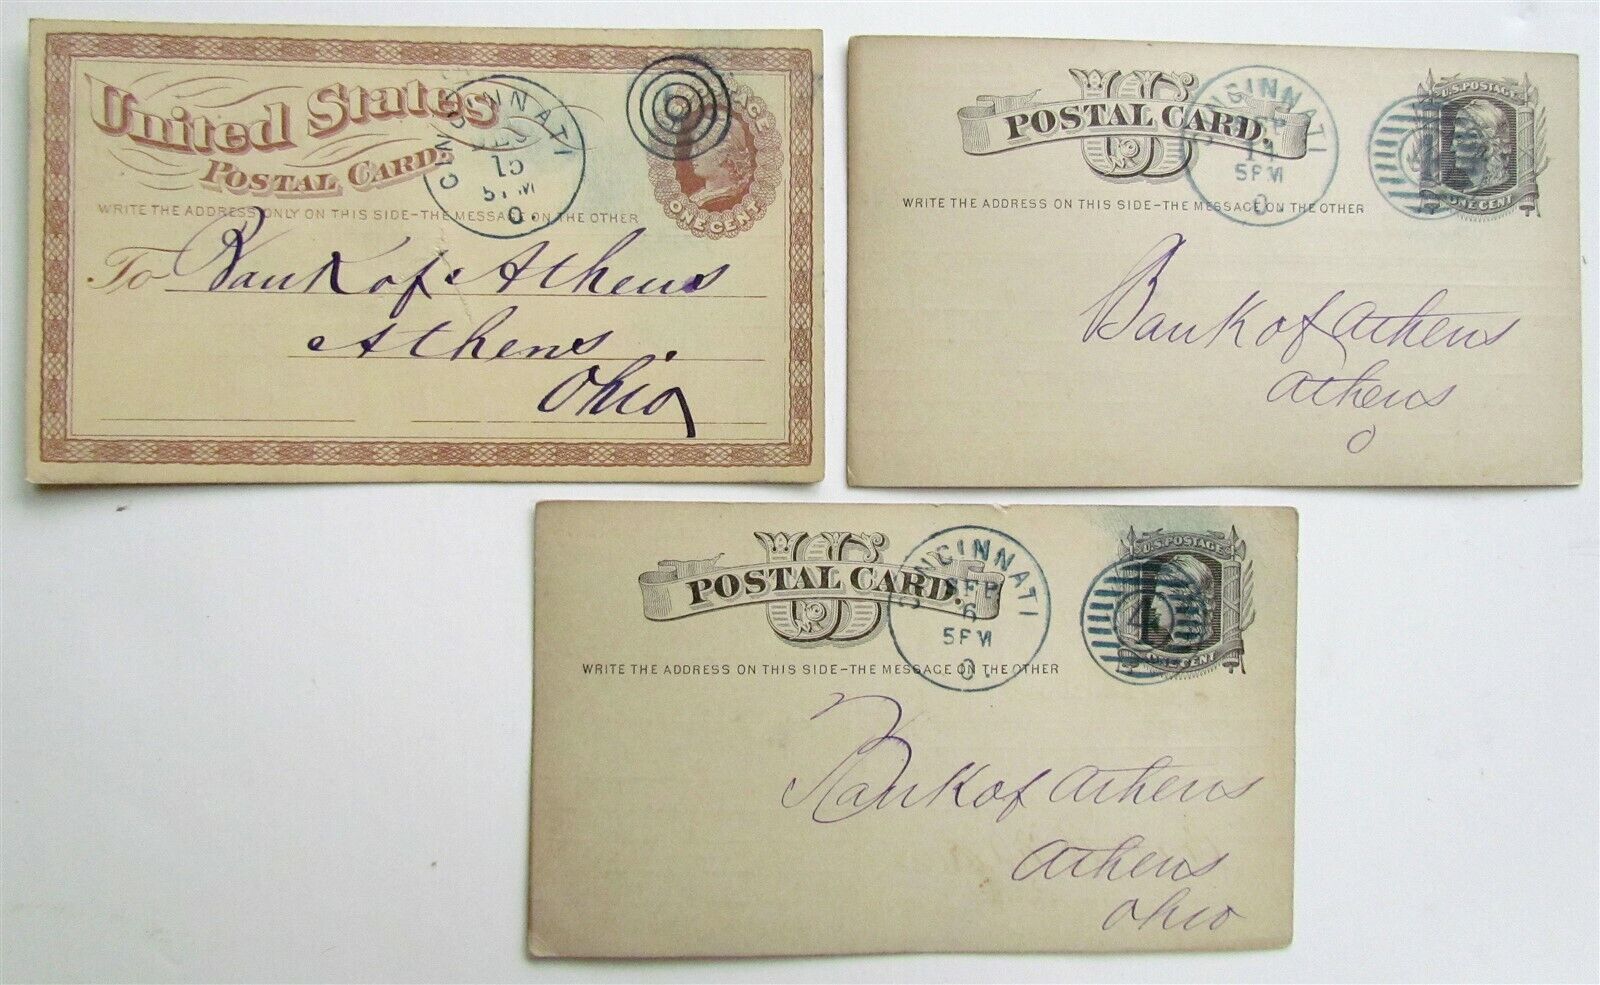 United States
POSTAL CARD.
WRITE THE ADDRESS ONLY ON THIS SIDE-THE MESSAGE ON THE OTHER
CINCINNATI
15
5PM
O.
ONE CENT
To Bank of Athens
Athens.
Ohio
US
POSTAL CARD.
WRITE THE ADDRESS ON THIS SIDE-THE MESSAGE ON THE OTHER
CINCINNATI
5PM
O.
U.S. POSTAGE
ONE CENT
Bank of Athens
Athens
O
US
POSTAL CARD.
WRITE THE ADDRESS ON THIS SIDE-THE MESSAGE ON THE OTHER
CINCINNATI
FEB
6
5PM
O.
U.S. POSTAGE
4
ONE CENT
Bank of Athens
Athens
Ohio